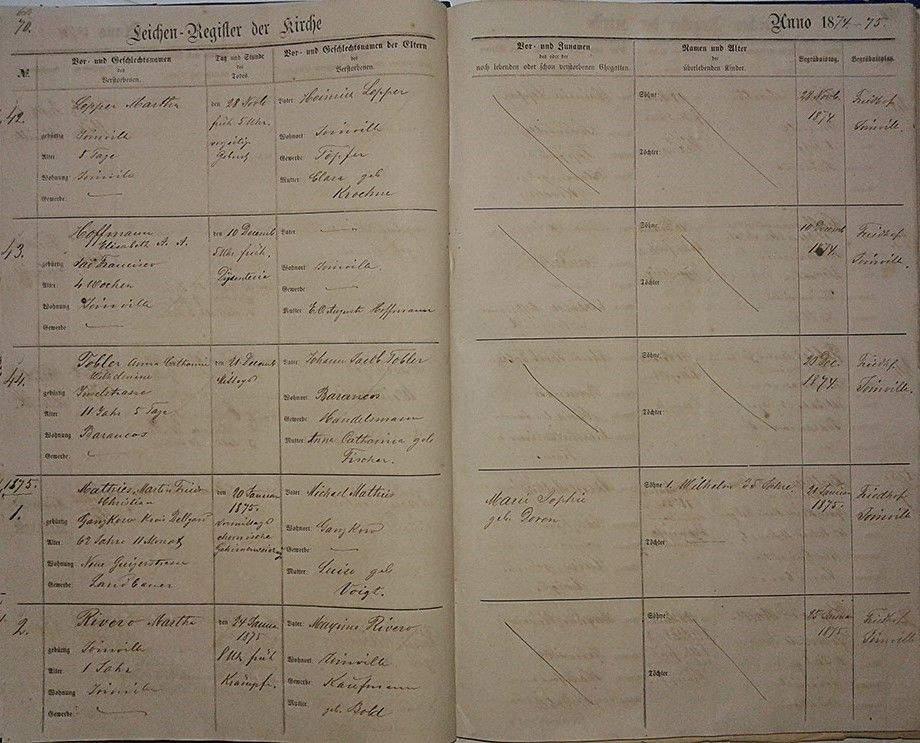 70.
Leichen-Register der Kirche
Anno 1874-75.
№
Vor- und Geschlechtsnamen
des
Verstorbenen.
Tag und Stunde
des
Todes
Vor- und Geschlechtsnamen der Eltern
des
Verstorbenen.
Vor- und Zunamen
des oder der
noch lebenden oder schon verstorbenen Ehegatten.
Namen und Alter
der
überlebenden Kinder.
Begräbnistag.
Begräbnisplatz.
42.
Lepper Martha
gebürtig Joinville
Alter 8 Tage
Wohnung Joinville
Gewerbe:
den 28 Novb
früh 5 Uhr.
Geburt
Vater Heinrich Lepper
Wohnort Joinville
Gewerbe: Töpfer
Mutter Clara geb
Kroehne
Söhne:
Töchter:
28 Novb.
1874
Friedhof
Joinville.
43.
Hoffmann
Elisabeth A. A.
gebürtig Sao Francisco
Alter 4 Wochen
Wohnung Joinville
Gewerbe
den 10 Decemb
5 Uhr früh.
Dysenterie
Vater
Wohnort Joinville
Gewerbe:
Mutter E. Auguste Hoffmann
Söhne:
Töchter
10 Decemb
1874.
Friedhof
Joinville.
44.
Tobler Anna Catharina
Wilhelmine
gebürtig Inselstrasse
Alter 11 Jahr 5 Tage
Wohnung Barancos
Gewerbe:
den 21 Decemb
Mittags
Vater Johann Jacob Tobler
Wohnort Barancos
Gewerbe Handelsmann
Mutter Anna Catharina geb
Fischer.
Söhne:
Töchter:
Dec.
1874.
Friedhof
Joinville.
1875.
1.
Mathies, Martin Fried
Christian
gebürtig Ganzkow Kreis Belgard
Alter: 62 Jahre 11 Monat
Wohnung Neue
Gewerbe: Landbauer
den 20 Januar
1875.
Vormittags
chronische
Vater Michael Mathies
Wohnort: Ganzkow
Gewerbe
Mutter: Luise geb
Voigt.
Marie Sophie
geb. Doron
Söhne 1. Wilhelm 35 Jahre.
Töchter:
21 Januar
1875.
Friedhof
Joinville
2.
Rivero Martha
gebürtig Joinville
Alter 1 Jahr
Wohnung Joinville
Gewerbe:
den 24 Janua
1875
8 Uhr früh
Krämpfe.
Vater: Maxime Rivero
Wohnort: Joinville
Gewerbe: Kaufmann
Mutter geb. Bold
Söhne:
Töchter
25
1875.
Friedhof
Joinville